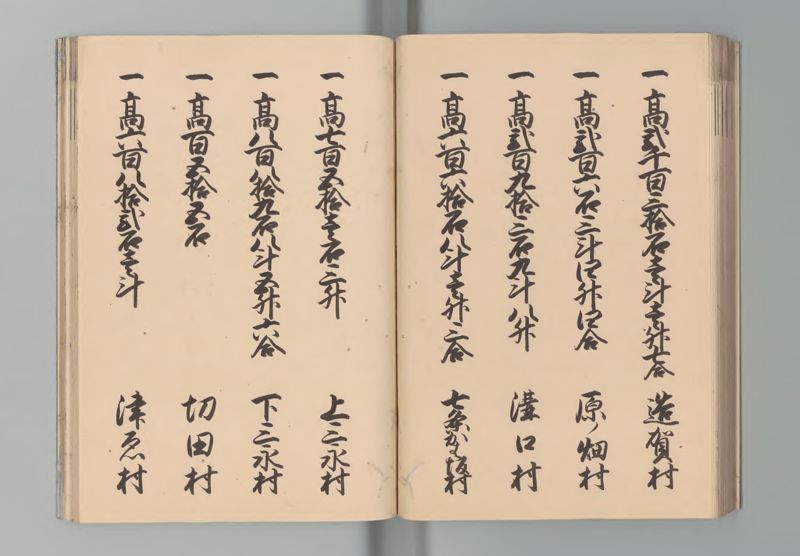 一 高弐千百三拾石壱斗壱升七合 造賀村
一 高弐百六石三斗四升四合 原畑村
一 高弐百九拾三石九斗八升 溝口村
一 高六百六拾石八斗壱升三合 七条かば坂村
一 高七百五拾壱石三升 上三永村
一 高八百八拾九石八斗五升六合 下三永村
一 高百五拾五石 切田村
一 高六百八拾弐石壱斗 津恵村